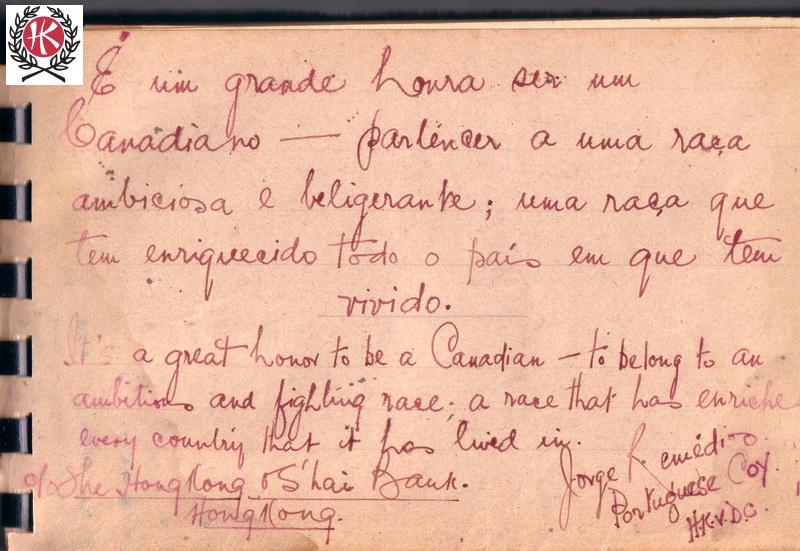 HK
É um grande honra ser um
Canadiano — partencer a uma raça
ambiciosa e beligerante; uma raça que
tem enriquecido todo o país em que tem
vivido.
It's a great honor to be a Canadian – to belong to an
ambitious and fighting race; a race that has enriche
every country that it has lived in.
Jorge Remédios.
c/o The HongKong & S'hai Bank.
Portuguese Coy.
HongKong.
H.K.V.D.C.